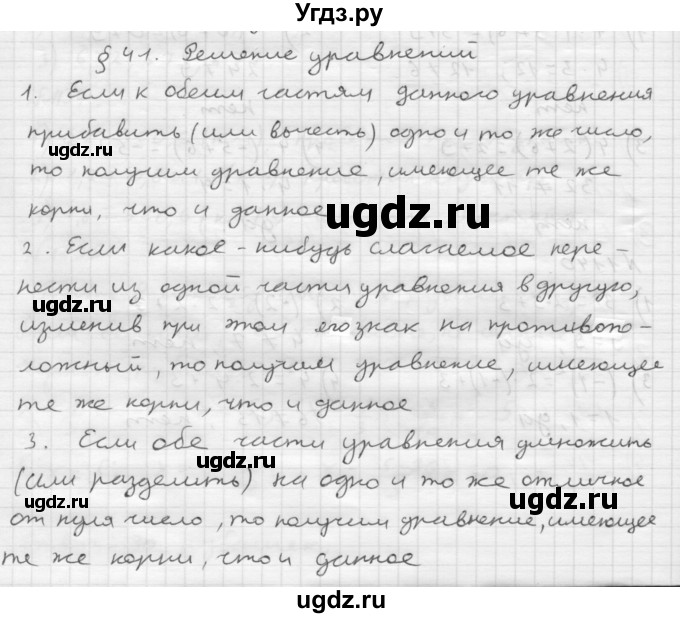 Угдз.ру
§ 41. Решение уравнений
1. Если к обеим частям данного уравнения
прибавить (или вычесть) одно и то же число,
ugdz.ru
то получим уравнение, имеющее те же
корни, что и данное
ugdz.ru
2. Если какое-нибудь слагаемое пере-
нести из одной части уравнения в другую,
ugdz.ru
изменив при этом его знак на противопо-
ложный, то получим уравнение, имеющее
те же корни, что и данное
3. Если обе части уравнения умножить
ugdz.ru
(или разделить) на одно и то же отличное
ugdz.ru
от нуля число, то получим уравнение, имеющее
те же корни, что и данное
ugdz.ru